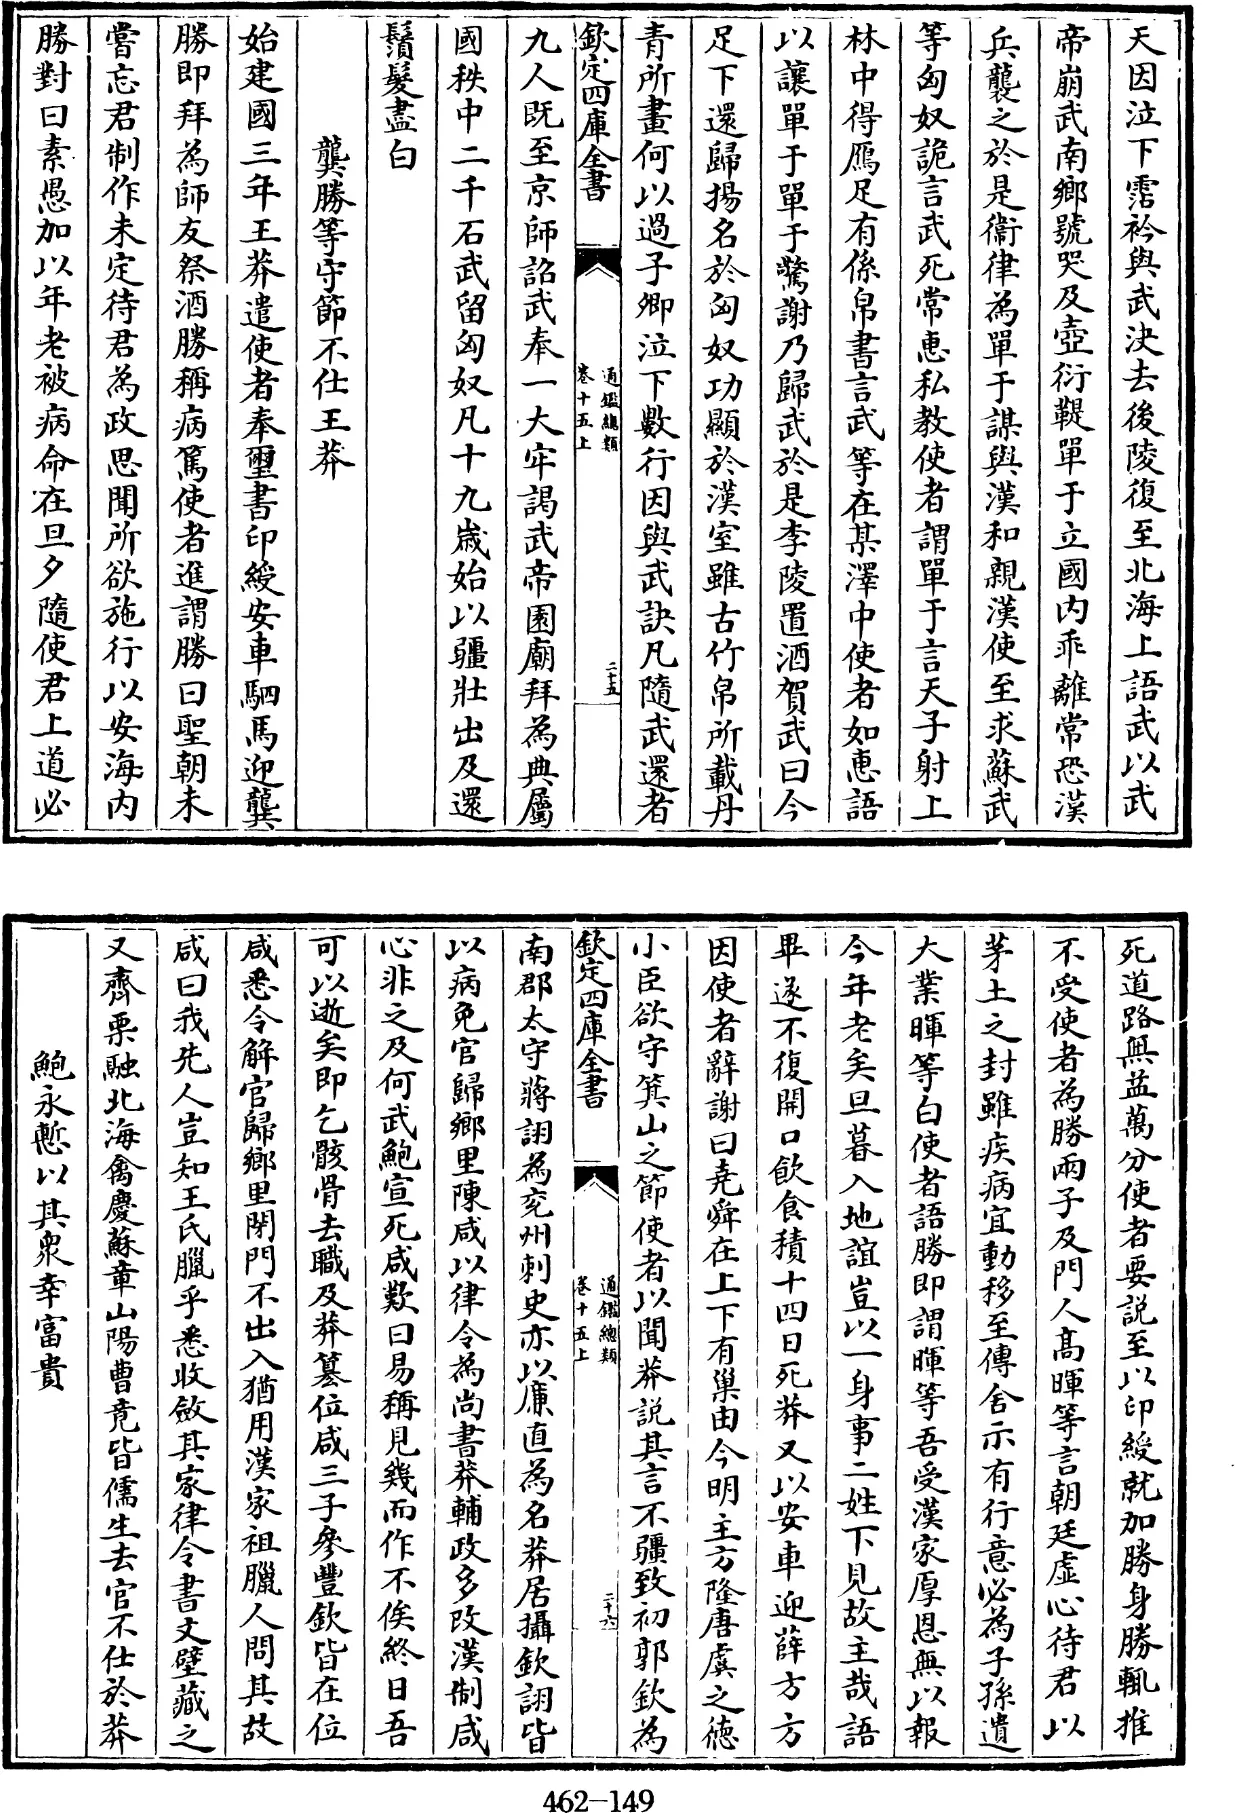 天因泣下霑衿與武決去後陵復至北海上語武以武
帝崩武南鄉號哭及壺衍鞮單于立國内乖離常恐漢
兵襲之於是衞律為單于謀與漢和親漢使至求蘇武
等匈奴詭言武死常惠私教使者謂單于言天子射上
林中得鴈足有係帛書言武等在某澤中使者如惠語
以讓單于單于驚謝乃歸武於是李陵置酒賀武曰今
足下還歸揚名於匈奴功顯於漢室雖古竹帛所載丹
青所畫何以過子卿泣下數行因與武訣凡隨武還者
欽定四庫全書
通鑑總類
卷十五上
二十五
九人既至京師詔武奉一大牢謁武帝園廟拜為典屬
國秩中二千石武留匈奴凡十九歲始以疆壯出及還
鬚髮盡白
龔勝等守節不仕王莽
始建國三年王莽遣使者奉璽書印綬安車駟馬迎龔
勝即拜為師友祭酒勝稱病篤使者進謂勝曰聖朝未
嘗忘君制作未定待君為政思聞所欲施行以安海内
勝對曰素愚加以年老被病命在旦夕隨使君上道必
死道路無益萬分使者要説至以印綬就加勝身勝輒推
不受使者為勝兩子及門人髙暉等言朝廷虚心待君以
茅土之封雖疾病宜動移至傳舍示有行意必為子孫遺
大業暉等白使者語勝即謂暉等吾受漢家厚恩無以報
今年老矣旦暮入地誼豈以一身事二姓下見故主哉語
畢遂不復開口飲食積十四日死莽又以安車迎薛方方
因使者辭謝曰堯舜在上下有巢由今明主方隆唐虞之德
小臣欲守箕山之節使者以聞莽説其言不疆致初郭欽為
欽定四庫全書
通鑑總類
卷十五上
二十六
南郡太守蔣詡為兖州刺史亦以廉直為名莽居攝欽詡皆
以病免官歸鄉里陳咸以律令為尚書莽輔政多改漢制咸
心非之及何武鮑宣死咸歎曰易稱見幾而作不俟終日吾
可以逝矣即乞骸骨去職及莽篡位咸三子參豐欽皆在位
咸悉令解官歸鄉里閉門不出入猶用漢家祖臘人問其故
咸曰我先人豈知王氏臘乎悉收斂其家律令書文壁藏之
又齊栗融北海禽慶蘇章山陽曹竟皆儒生去官不仕於莽
鮑永慙以其衆幸富貴
462-149